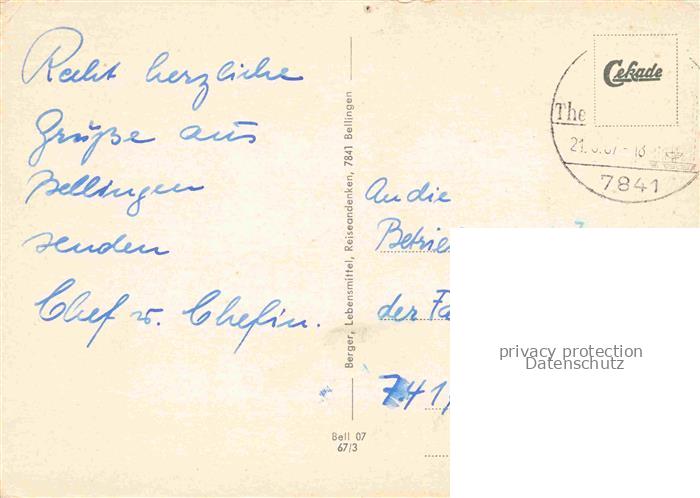 Recht herzliche
Grüße aus
Bellingen
senden
Chef u. Chefin.
Berger, Lebensmittel, Reiseandenken, 7841 Bellingen
Bell 07
67/3
Cekade
The
7841
An die
der
privacy protection
Datenschutz